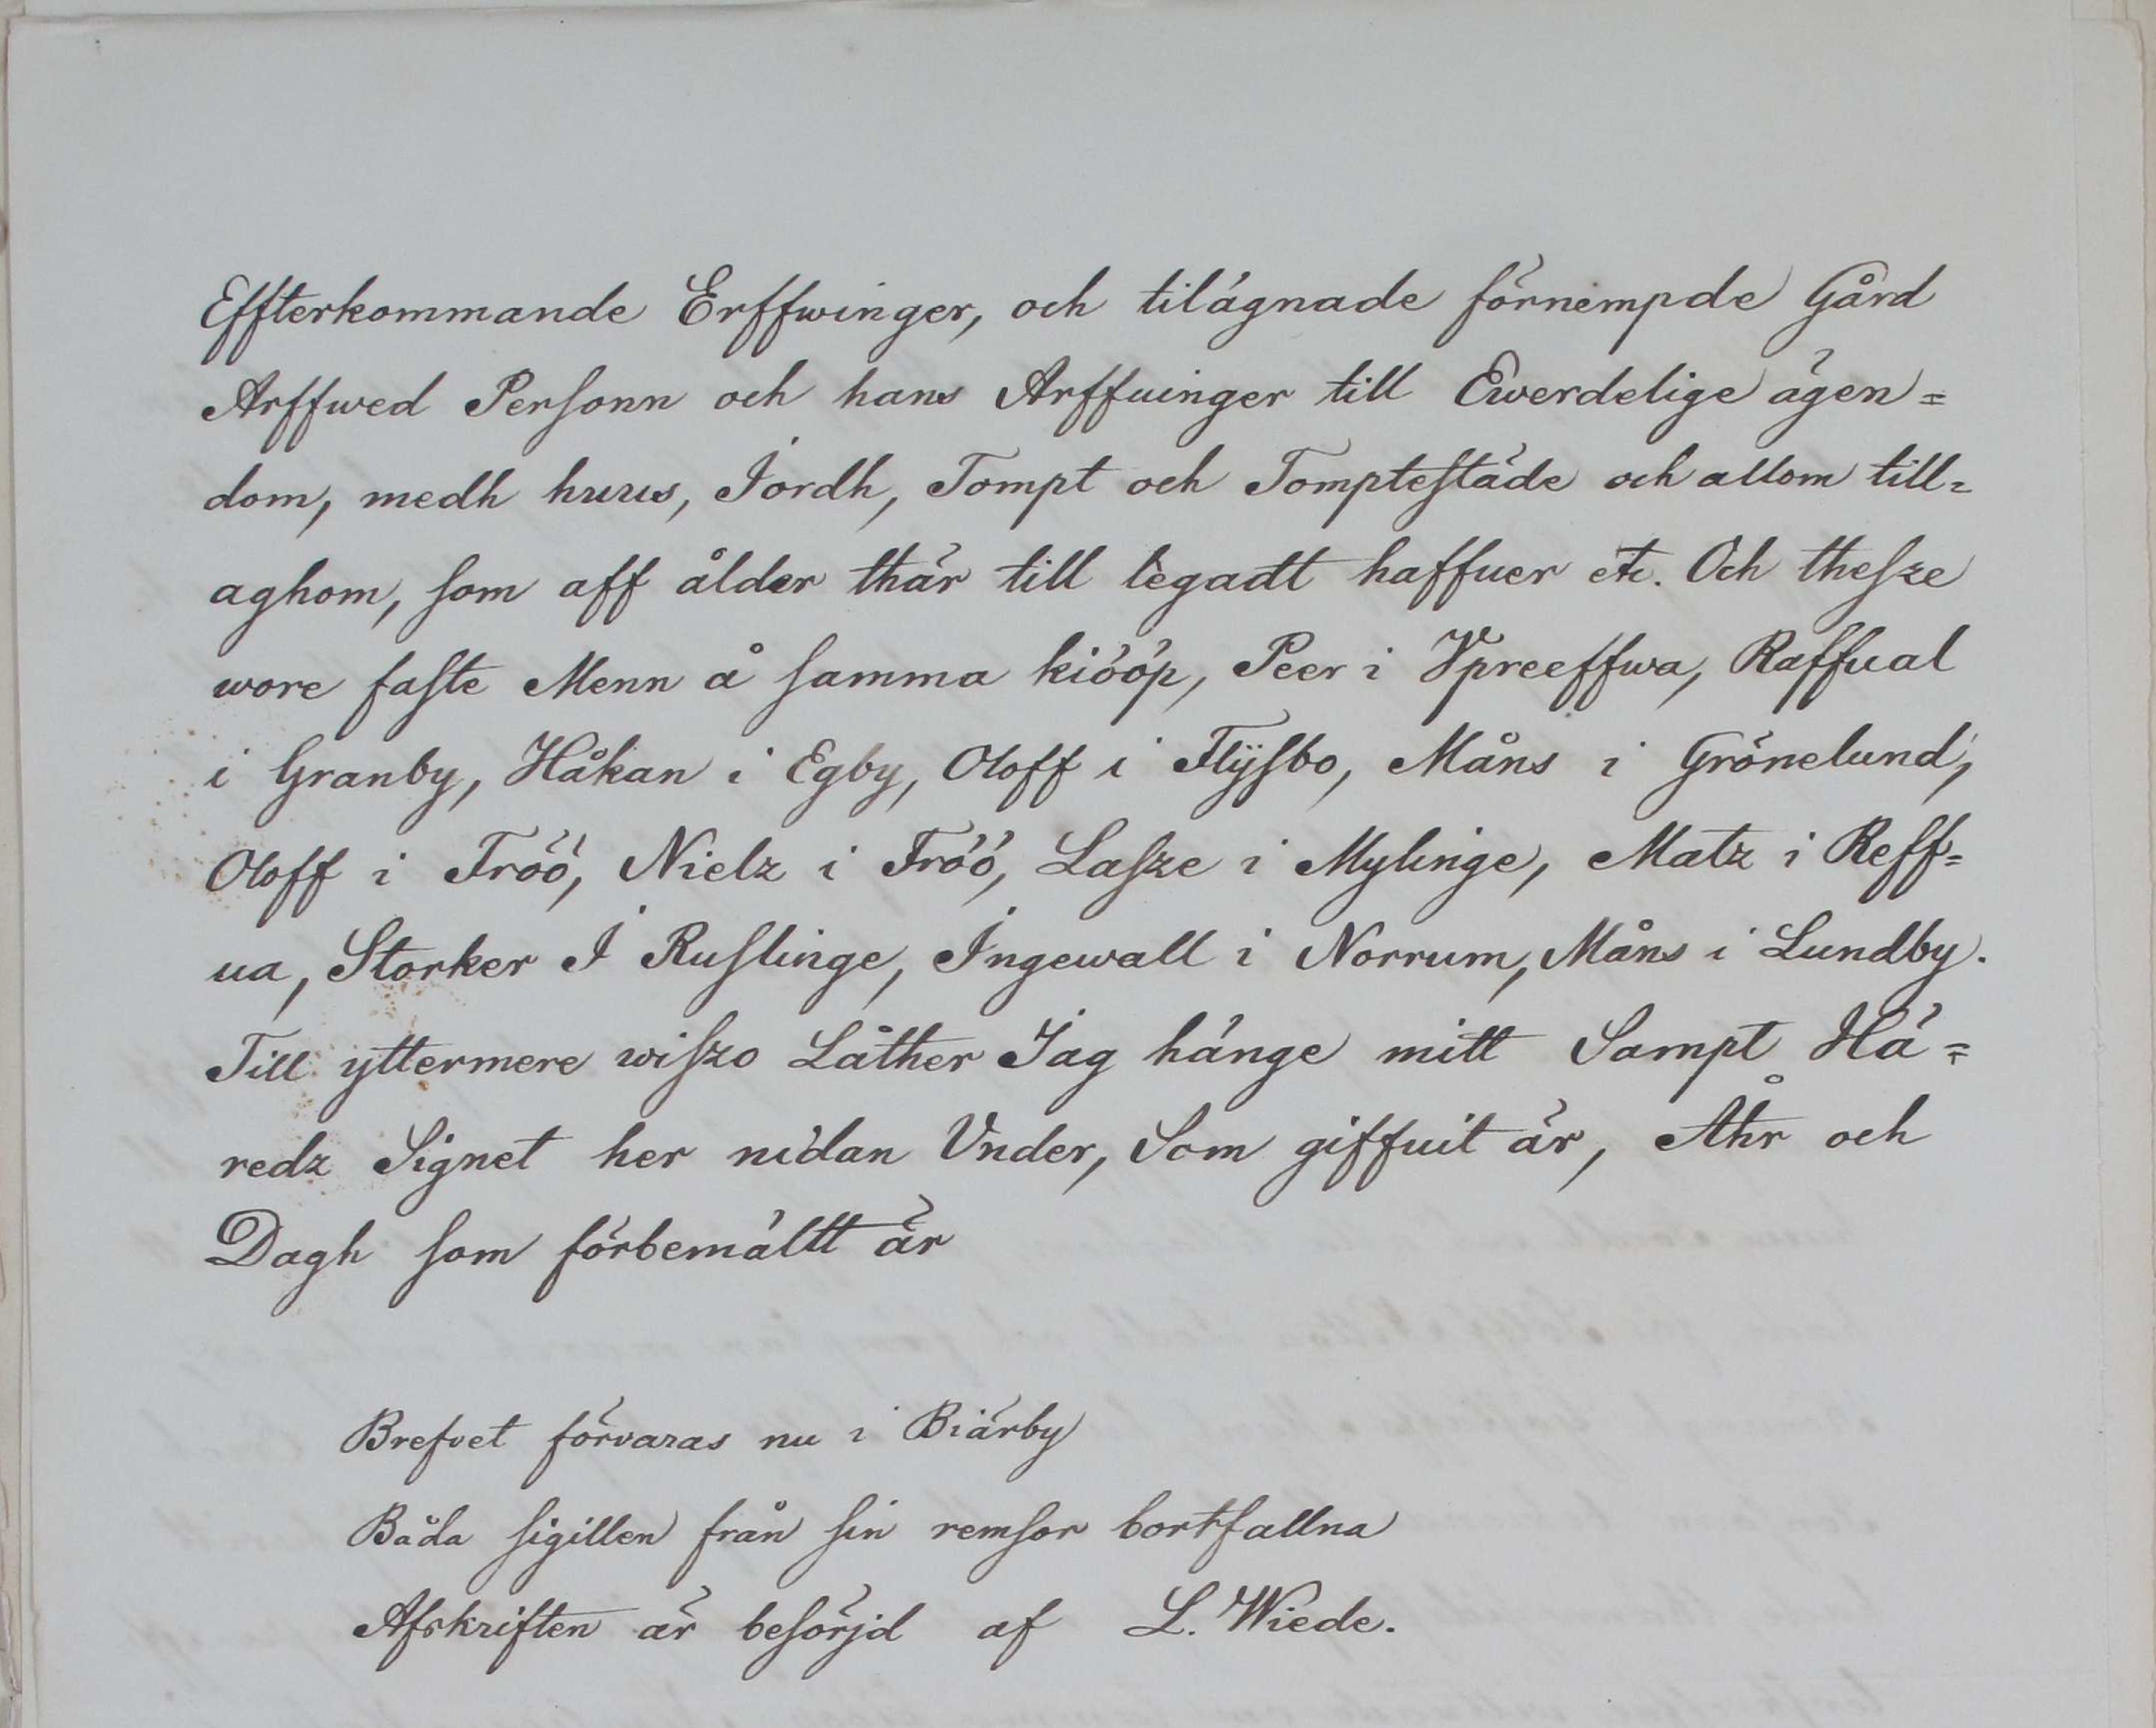 Effterkommande Erffwinger, och tilägnade förnempde Gård
Arffwed Personn och hans Arffuinger till Ewerdelige ägen=
dom, medh huus, Jordh, Tompt och Tomptestäde och allom till=
aghom, som aff ålder thär till legadt haffuer etc. Och thesze
wore faste Menn å samma kiööp, Peer i Vpreeffwa, Raffual
i Granby, Håkan i Egby, Oloff i Flÿsbo, Måns i Grönelund,
Oloff i Fröö, Nielz i Fröö, Lasze i Mylinge, Matz i Reff=
ua, Storker I Ruslinge, Ingewall i Norrum, Måns i Lundby.
Till yttermere wiszo Låther Jag hänge mitt Sampt Hä=
redz Signet her nidan Vnder, Som giffuit är, Åhr och
Dagh som förbemältt är
Brefvet förvaras nu i Biärby
Båda sigillen från sin remsor bortfallna
Afskriften är besörjd af L. Wiede.